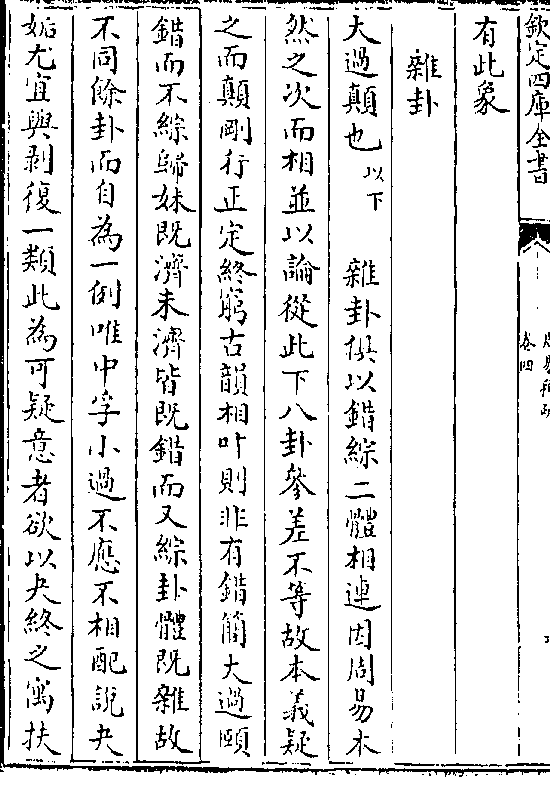 欽定四庫全書
卷四
有此象
雜卦
大過顛也以下 雜卦俱以錯綜二體相連因周易本
然之次而相並以論從此下八卦參差不等故本義疑
之而顛剛行正定終窮古韻相叶則非有錯簡大過頤
錯而不綜歸妹既濟未濟皆既錯而又綜卦體既雜故
不同餘卦而自為一例唯中孚小過不應不相配說夬
姤尤宜與剥復一類此為可疑意者欲以夬終之寓扶